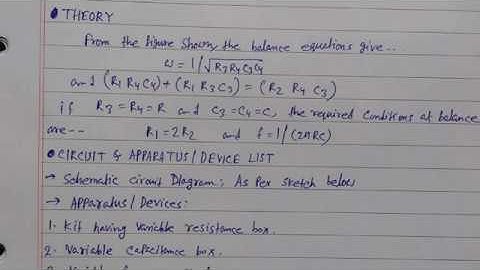 • THEORY
From the figure shown the balance equations give..
ω = 1/√R3R4C3C4
and (R1 R4 C4) + (R1 R3 C3) = (R2 R4 C3)
if R3 = R4 = R and C3 = C4 = C, the required conditions at balance
are-- R1 = 2R2 and f = 1/(2πRC)
• CIRCUIT & APPARATUS/DEVICE LIST
→ Schematic circuit Diagram: As Per sketch below
→ Apparatus/Devices:
1- Kit having variable resistance box.
2- Variable capacitance box.